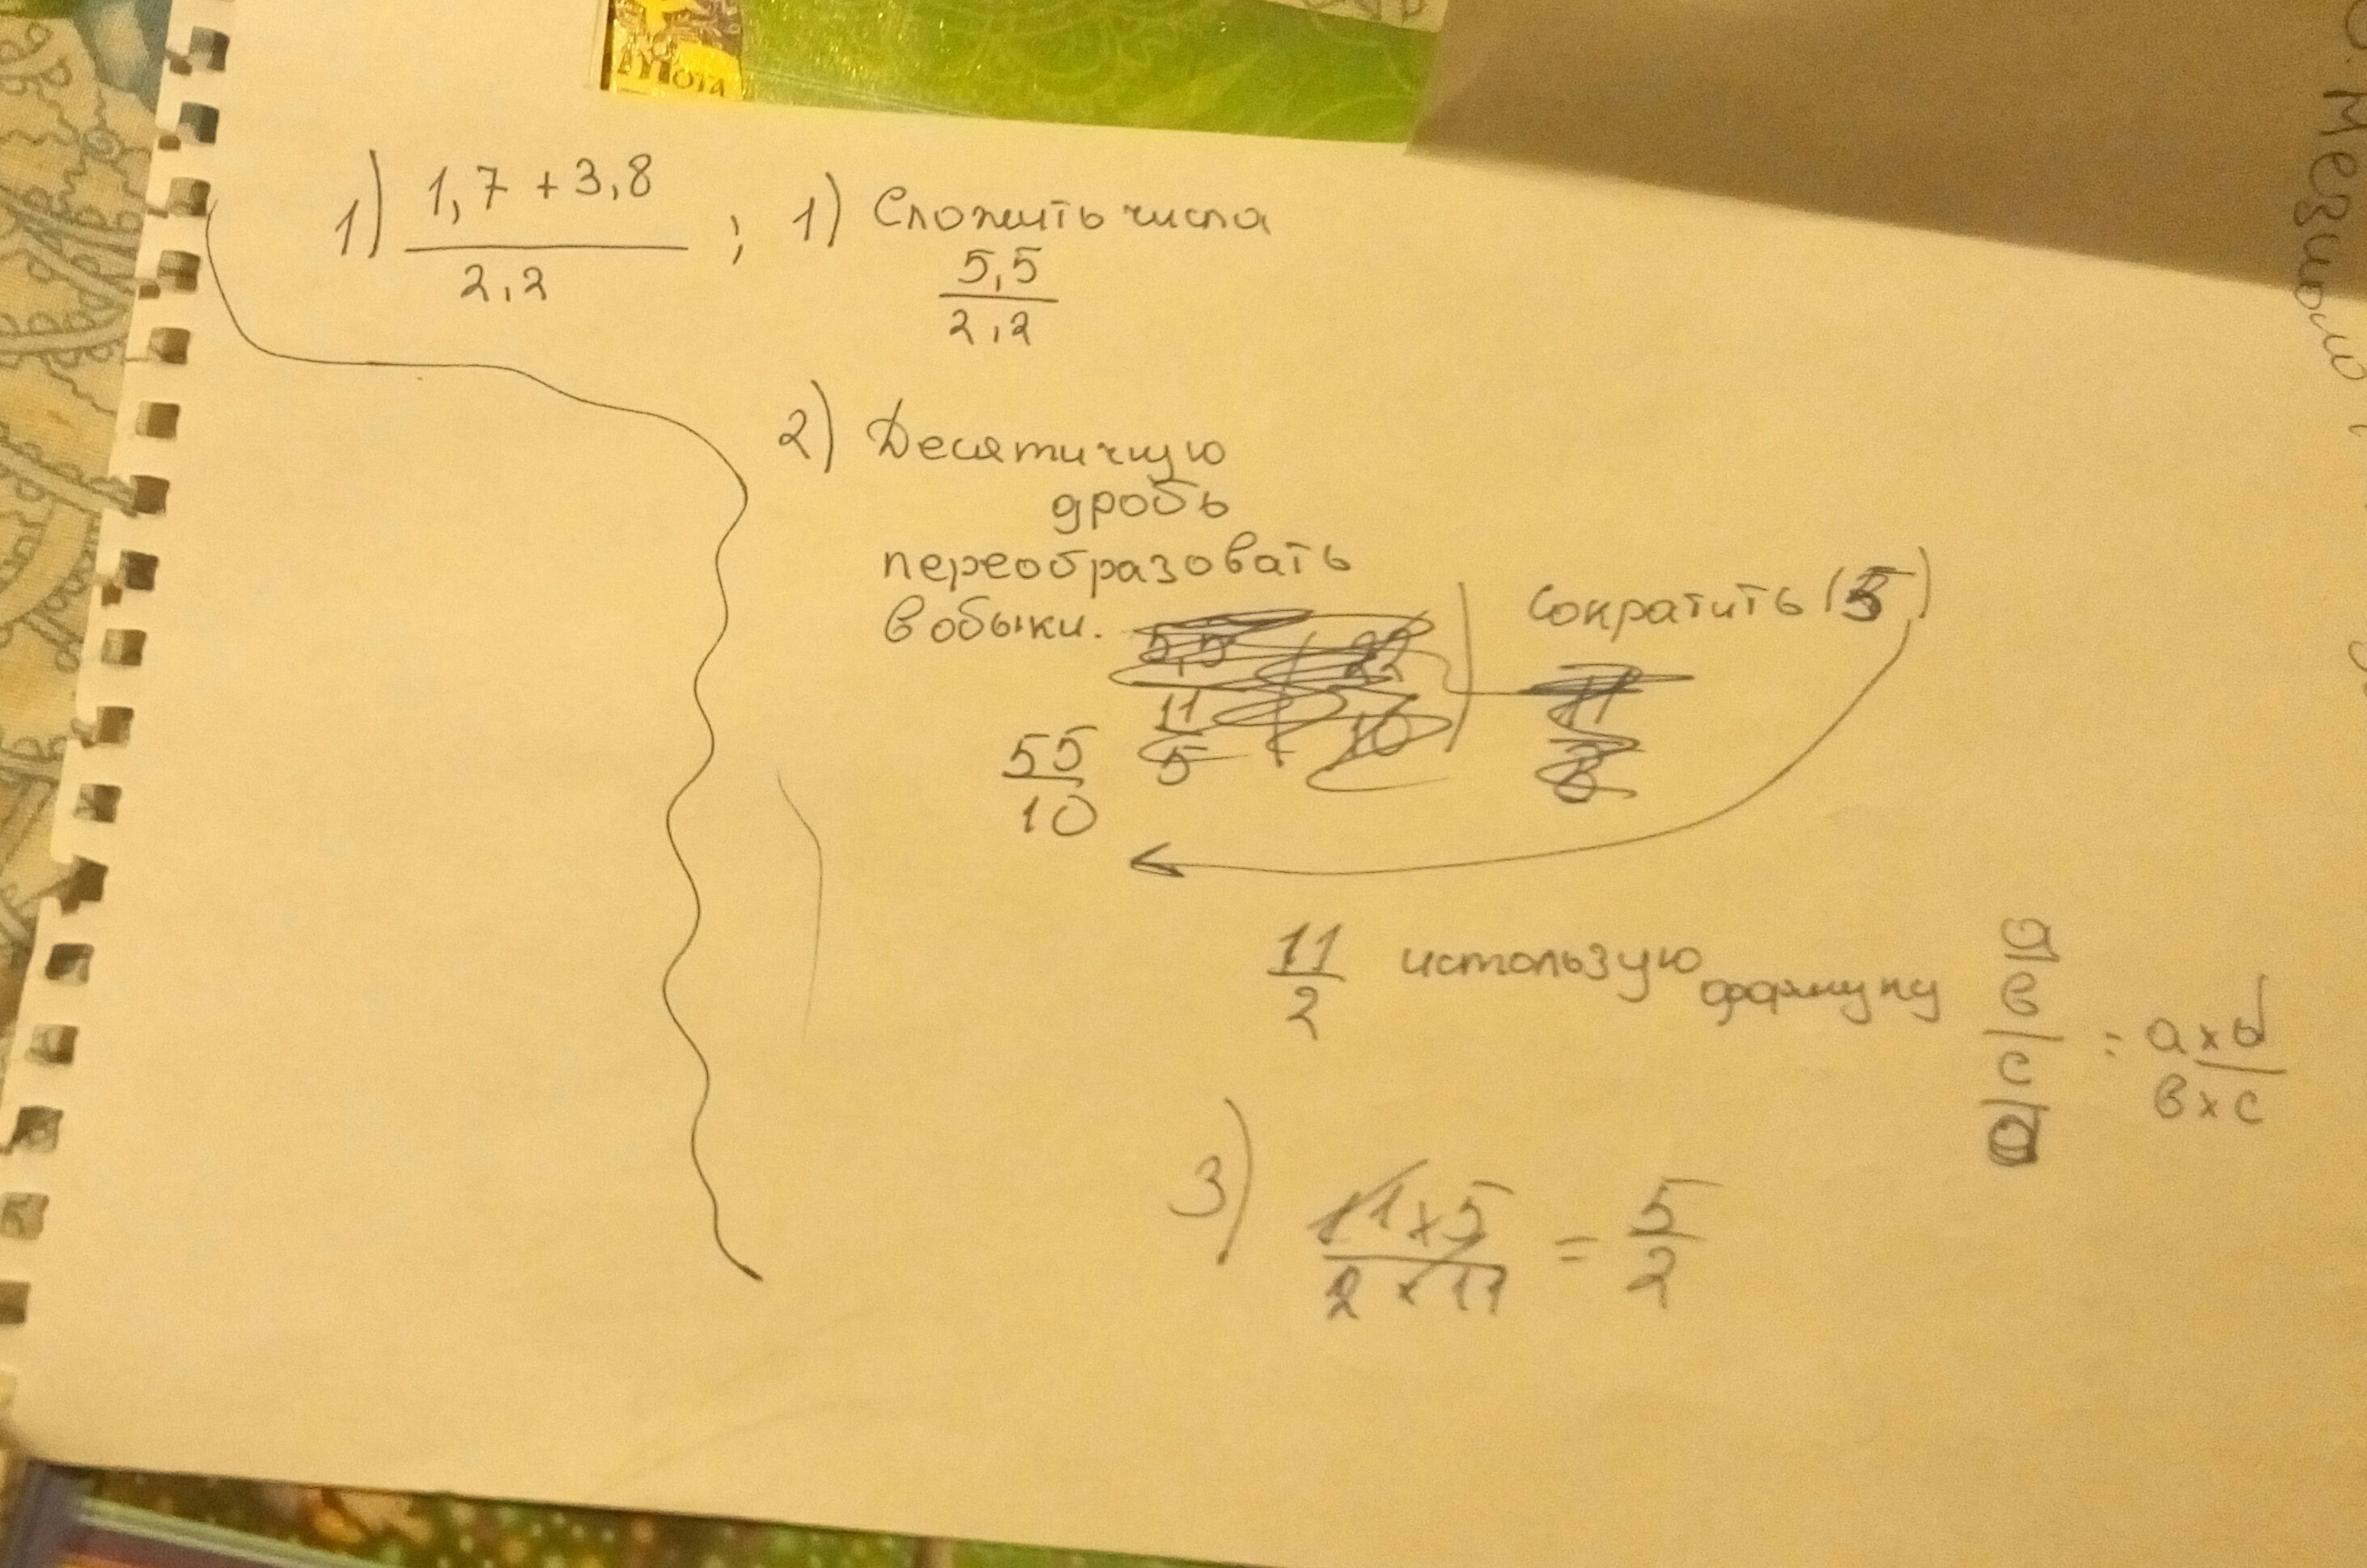 Мота
1) 1,7 + 3,8 / 2,2 ; 1) Сложить числа
5,5 / 2,2
2) Десятичную
дробь
переобразовать
в обыкн. сократить (5)
55 / 10
11 / 2 использую формулу a / в / c / d = a x d / в x c
3) 11 x 5 / 2 x 11 = 5 / 2